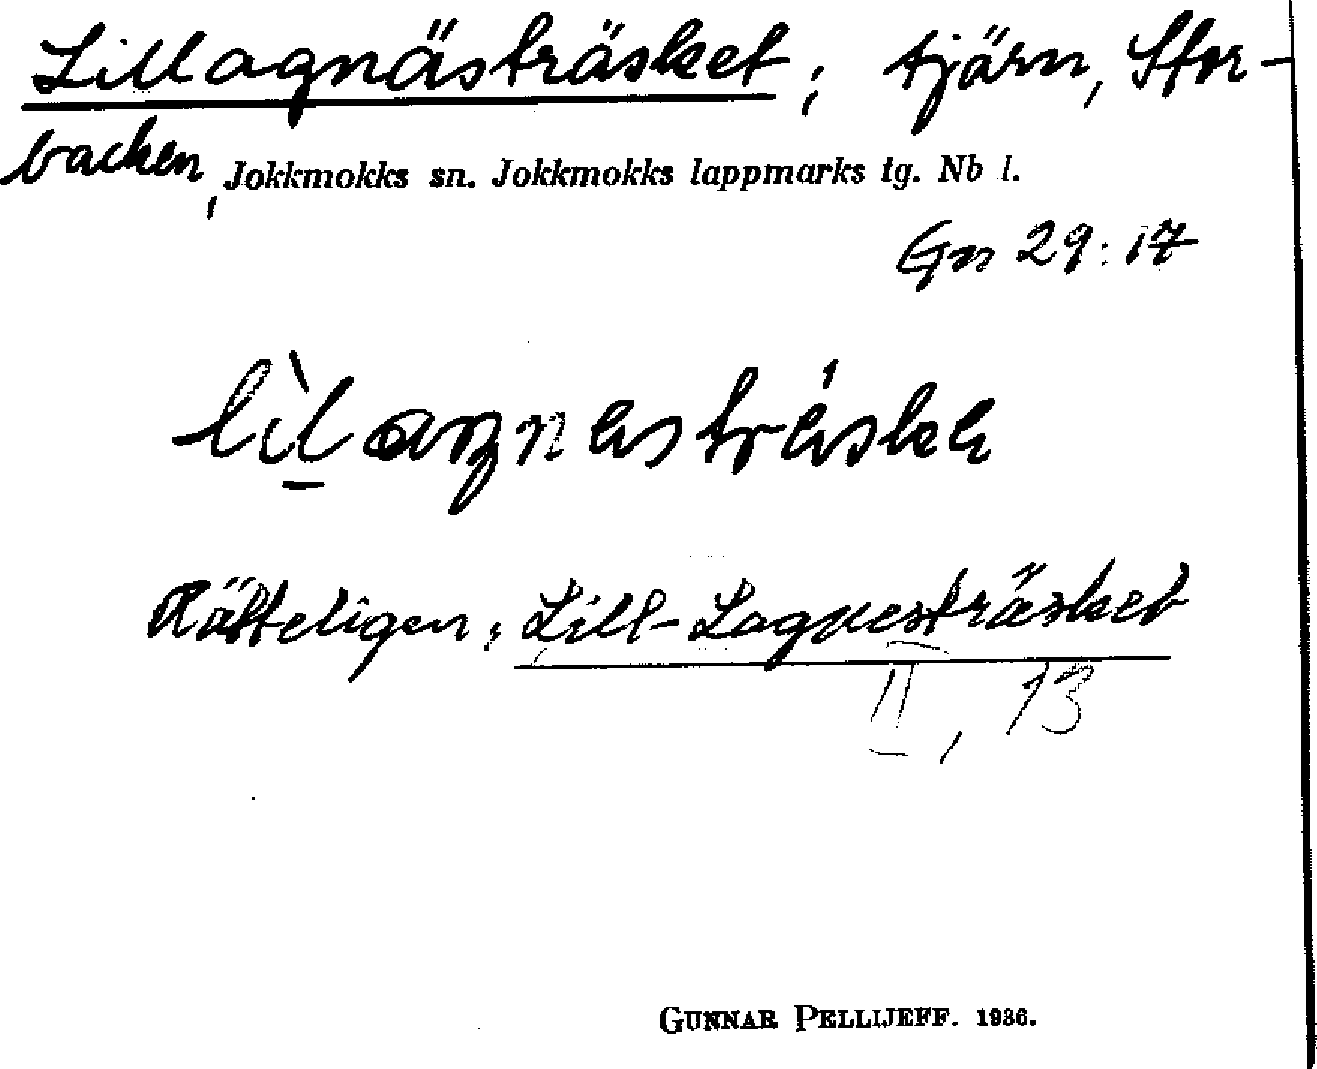 Lillagnästräsket; tjärn, Stor-
backen,
Jokkmokks sn. Jokkmokks lappmarks tg. Nb l.
Gn 29:17
lìlagnestráske
Rätteligen: Lill-Lagnesträsket
II, 13
GUNNAR PELLIJEFF. 1936.